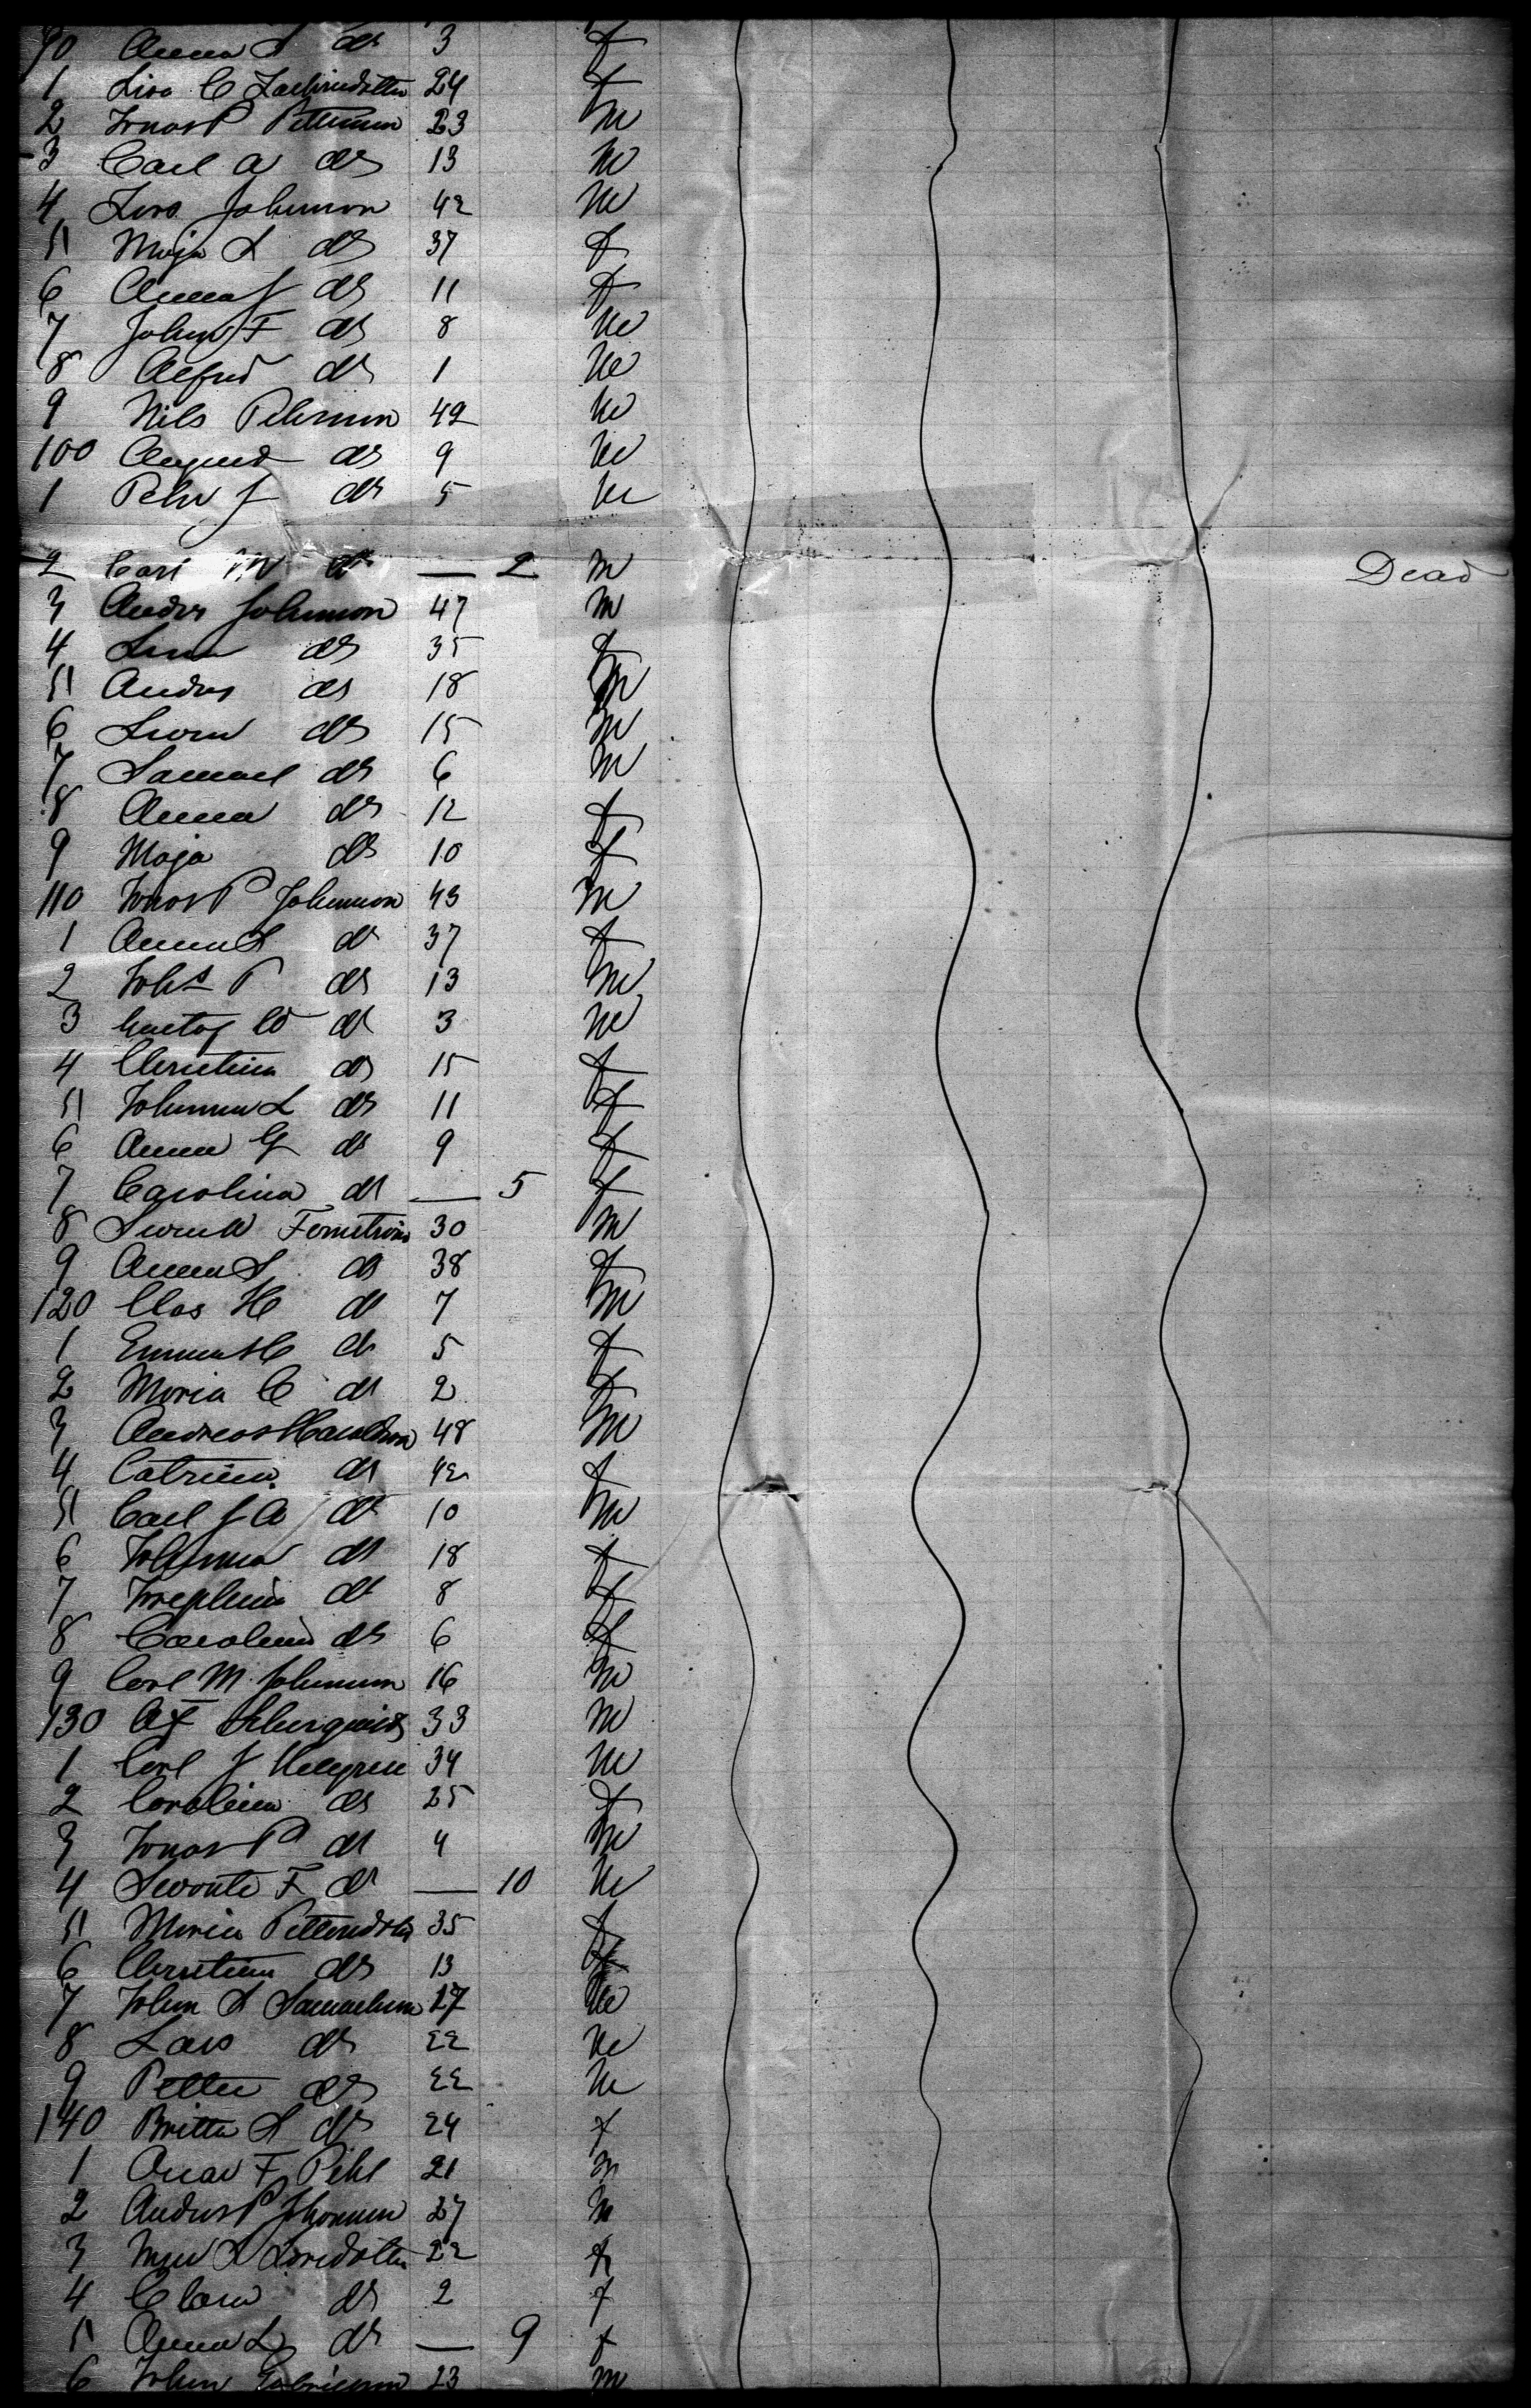 90 Anna S do 3 f
1 Lisa C 24 f
2 Jonas P Petterson 23 m
3 Carl A do 13 m
4 Lars Johnson 42 m
5 Maja L do 37 f
6 Anna J do 11 f
7 John F do 8 m
8 Alfred do 1 m
9 Nils Pehrson 42 m
100 August do 9 m
1 Pehr J do 5 m
2 Carl M do — 2 m Dead
3 Anders Johnson 47 m
4 Lena do 35 f
5 Anders do 18 m
6 Swen do 15 m
7 Samuel do 6 m
8 Anna do 12 f
9 Maja do 10 f
110 Jonas P Johnson 43 m
1 Anna S do 37 f
2 Johs P do 13 m
3 Gustaf W do 3 m
4 Christina do 15 f
5 Johanna L do 11 f
6 Anna G do 9 f
7 Carolina do — 5 f
8 Swen A Fornstrom 30 m
9 Anna S do 38 f
120 Clas H do 7 m
1 Emma H do 5 f
2 Maria C do 2 f
3 Andreas 48 m
4 Catrina do 42 f
5 Carl J A do 10 m
6 Johanna do 18 f
7 Josephina do 8 f
8 Carolina do 6 f
9 Carl M Johnson 16 m
130 A F 33 m
1 Carl J 34 m
2 Carolina do 25 f
3 Jonas P do 4 m
4 Swante F do — 10 m
5 Maria 35 f
6 Christina do 13 f
7 John S Samuelson 27 m
8 Lars do 22 m
9 Petter do 22 m
140 Britta S do 24 f
1 Oscar F Pihl 21 m
2 Anders P Johnson 27 m
3 L Larsdotter 22 f
4 Clara do 2 f
5 Anna L do — 9 f
6 John Gabrielson 23 m